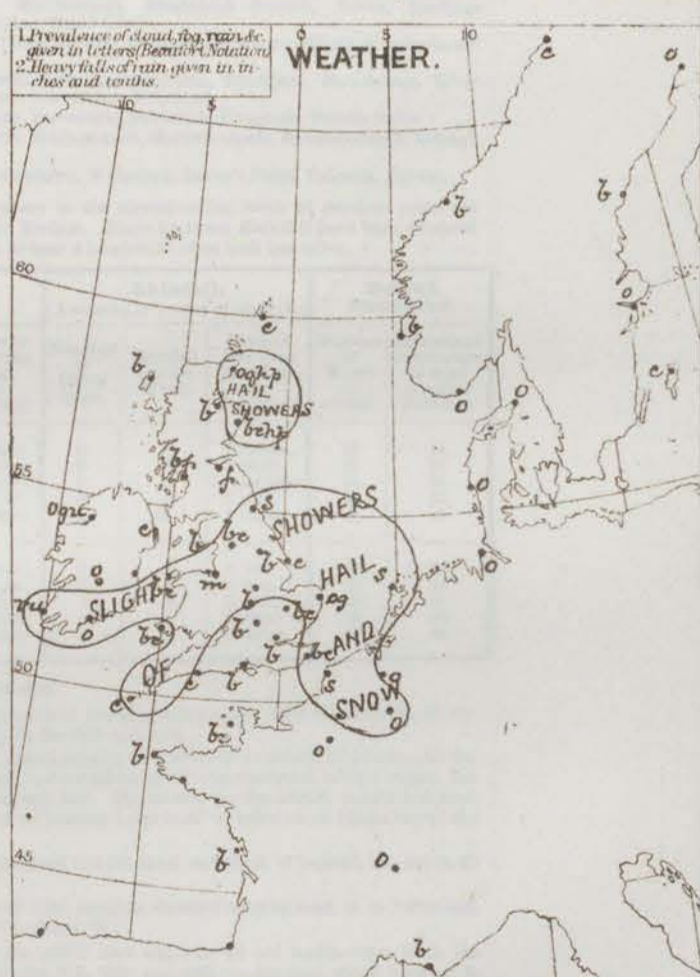 1. Prevalence of cloud, fog, rain &c.
given in letters (Beaufort Notation)
2. Heavy falls of rain given in in-
ches and tenths.
WEATHER.
10
5
0
5
10
c
o
b
b
60
c
b
o
c
b
oghp
HAIL
SHOWERS
b
bchp
o
o
55
bf
f
o
ogrt
c
s
SHOWERS
b
bc
c
o
o
b
m
HAIL
s
SLIGHT
bc
b
og
o
b
bc
AND
b
b
bc
50
OF
c
b
s
g
c
SNOW
o
bc
o
b
45
b
o
b